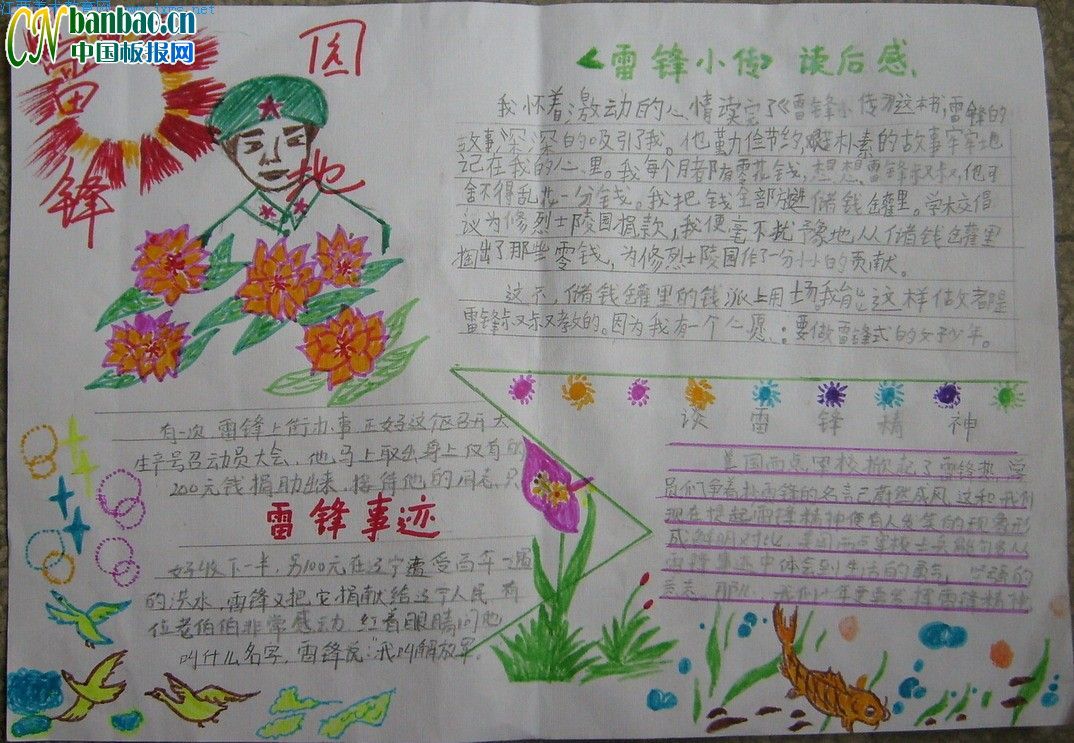 banbao.cn
中国板报网
雷
锋
园
地
《雷锋小传》读后感、
我怀着激动的心情读完了《雷锋小传》这本书,雷锋的
故事深深的吸引了我。他勤俭节约,艰朴素的故事牢牢地
记在我的心里。我每个月都有零花钱,想想雷锋叔叔,他可
舍不得乱花一分钱。我把钱全部放进储钱罐里。学校倡
议为修烈士陵园捐款,我便毫不犹豫地从储钱罐里
掏出了那些零钱,为修烈士陵园作了一分小小的贡献。
这不,储钱罐里的钱派上用场我能这样做都是
雷锋叔叔教的。因为我有一个心愿:要做雷锋式的好少年。
有一次雷锋上街办事,正好这个区召开大
生产号召动员大会,他马上取出身上仅有的
200元钱捐助出来,接待他的同志只
雷锋事迹
好收下一半,另100元在辽宁遭受百年一遇
的洪水,雷锋又把它捐献给辽宁人民 有
位老伯伯非常感动 红着眼睛问他
叫什么名字,雷锋说:"我叫解放军。
谈 雷 锋 精 神
美国西点军校掀起了雷锋热,学
员们争着抄雷锋的名言已蔚然成风,这和我们
现在提起雷锋精神便有人发笑的现象形
成鲜明对比,美国西点军校
雷锋事迹中体会到生活的勇气,坚强的